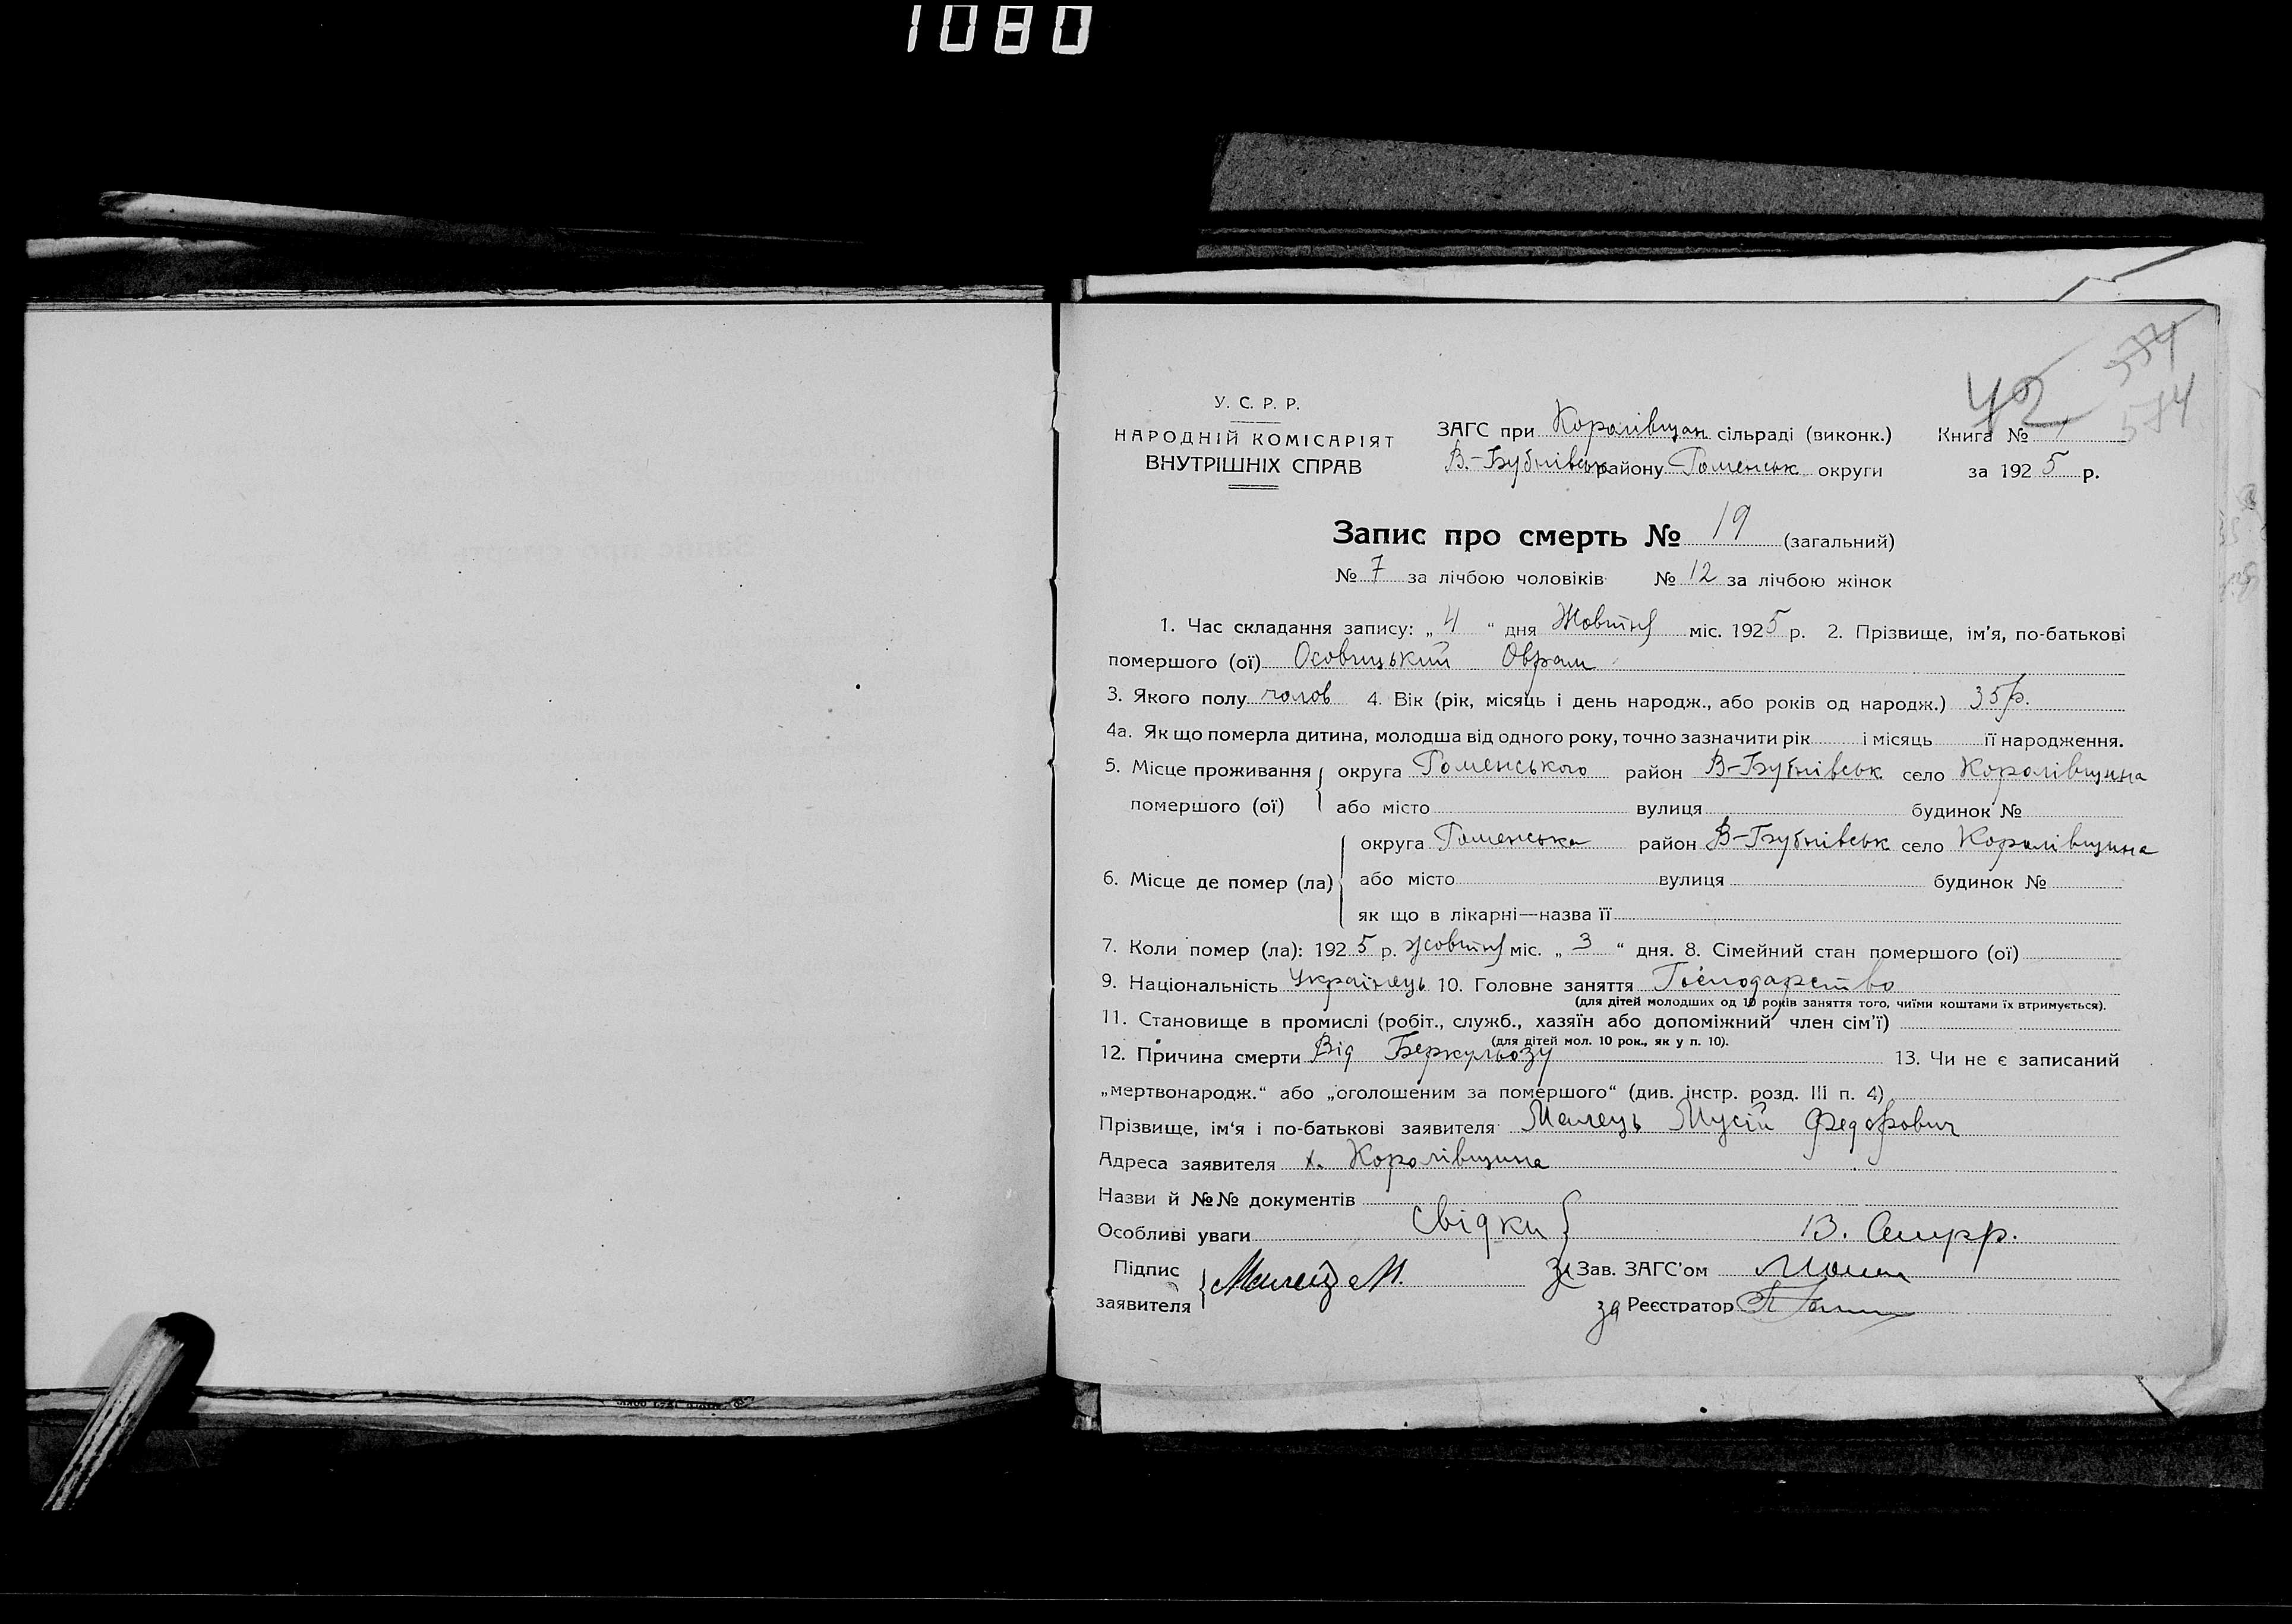 1080
574
574
42
У. С. Р. Р.
НАРОДНІЙ КОМІСАРІЯТ
ВНУТРІШНІХ СПРАВ
ЗАГС при Королівщан сільраді (виконк.) Книга №
В.-Бубнівськ району Роменськ округи за 1925 р.
Запис про смерть № 19 (загальний)
№ 7 за лічбою чоловіків № 12 за лічбою жінок
1. Час складання запису: „ 4 “ дня Жовтня міс. 1925 р. 2. Прізвище, ім’я, по-батькові
помершого (ої) Осовицький Оврам
3. Якого полу чолов 4. Вік (рік, місяць і день народж., або років од народж.) 35 р.
4а. Як що померла дитина, молодша від одного року, точно зазначити рік і місяць її народження.
5. Місце проживання помершого (ої) { округа Роменського район В-Бубнівськ село Королівщина
або місто вулиця будинок №
6. Місце де помер (ла) { округа Роменська район В-Бубнівськ село Королівщина
або місто вулиця будинок №
як що в лікарні—назва її
7. Коли помер (ла): 1925 р. жовтня міс. „ 3 “ дня. 8. Сімейний стан помершого (ої)
9. Національність Українець 10. Головне заняття Господарство
(для дітей молодших од 10 років заняття того, чиїми коштами їх втримується).
11. Становище в промислі (робіт., служб., хазяїн або допоміжний член сім’ї)
(для дітей мол. 10 рок., як у п. 10).
12. Причина смерти Від Беркульозу 13. Чи не є записаний
„мертвонародж.“ або „оголошеним за помершого“ (див. інстр. розд. III п. 4)
Прізвище, ім‘я і по-батькові заявителя Малець Мусій Федорович
Адреса заявителя х. Королівщина
Назви й №№ документів
Особливі уваги Свідки {
Підпис заявителя { Малець М. За Зав. ЗАГС’ом
за Реєстратор